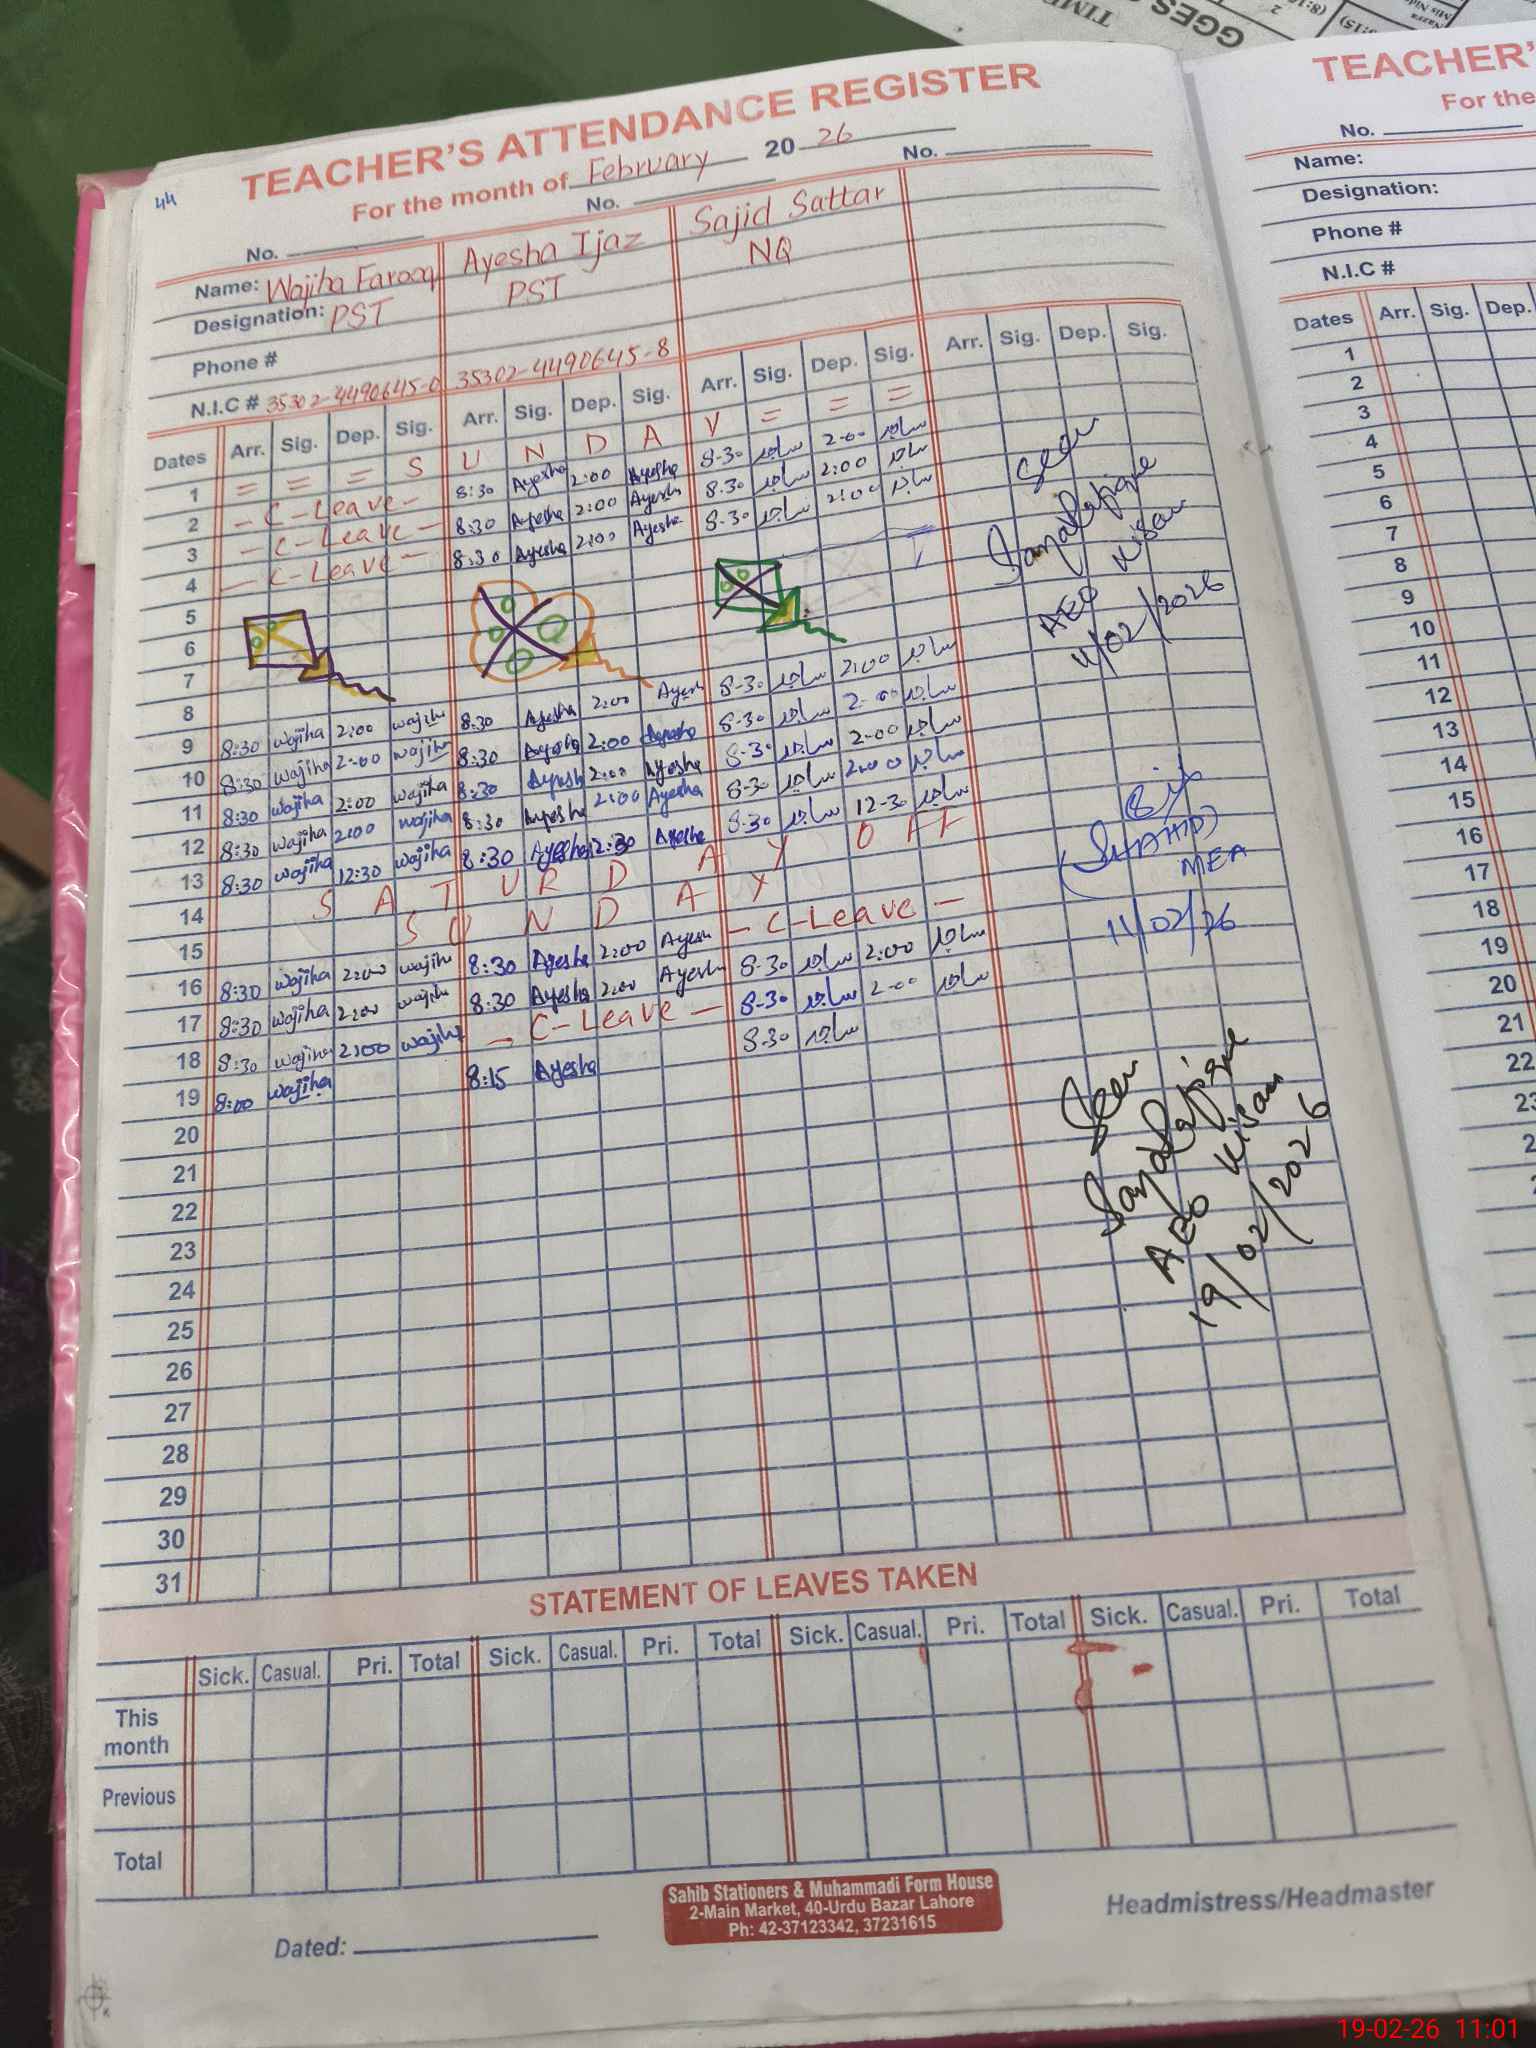 GGES
TIME
TEACHER'S ATTENDANCE REGISTER
44
For the month of February 2026
No. No. No.
Name: Wajiha Farooq Ayesha Ijaz Sajid Sattar
Designation: PST PST NQ
Phone #
N.I.C # 35302-4490645-0 35302-4490645-8
Dates Arr. Sig. Dep. Sig. Arr. Sig. Dep. Sig. Arr. Sig. Dep. Sig. Arr. Sig. Dep. Sig.
1 = = = S U N D A Y = = =
2 - C-Leave - 8:30 Ayesha 2:00 Ayesha 8-30 ساجد 2-00 ساجد
3 - C-Leave - 8:30 Ayesha 2:00 Ayesha 8-30 ساجد 2:00 ساجد
4 - C-Leave - 8:30 Ayesha 2:00 Ayesha 8-30 ساجد 2:00 ساجد
5
6
7
8
9 8:30 wajiha 2:00 wajiha 8:30 Ayesha 2:00 Ayesha 8-30 ساجد 2:00 ساجد
10 8:30 wajiha 2:00 wajiha 8:30 Ayesha 2:00 Ayesha 8-30 ساجد 2-00 ساجد
11 8:30 wajiha 2:00 wajiha 8:30 Ayesha 2:00 Ayesha 8-30 ساجد 2-00 ساجد
12 8:30 wajiha 2:00 wajiha 8:30 Ayesha 2:00 Ayesha 8-30 ساجد 2:00 ساجد
13 8:30 wajiha 12:30 wajiha 8:30 Ayesha 12:30 Ayesha 8-30 ساجد 12-30 ساجد
14 S A T U R D A Y O F F
15 S U N D A Y
16 8:30 wajiha 2:00 wajiha 8:30 Ayesha 2:00 Ayesha - C-Leave -
17 8:30 wajiha 2:00 wajiha 8:30 Ayesha 2:00 Ayesha 8-30 ساجد 2:00 ساجد
18 8:30 wajiha 2:00 wajiha - C-Leave - 8-30 ساجد 2-00 ساجد
19 8:00 wajiha 8:15 Ayesha 8-30 ساجد
20
21
22
23
24
25
26
27
28
29
30
31
Seen
AEO Kisan
11/02/2026
(SHAHID)
MEA
11/02/26
Seen
AEO Kisan
19/02/2026
STATEMENT OF LEAVES TAKEN
Sick. Casual. Pri. Total Sick. Casual. Pri. Total Sick. Casual. Pri. Total Sick. Casual. Pri. Total
This month
Previous
Total
Sahib Stationers & Muhammadi Form House
2-Main Market, 40-Urdu Bazar Lahore
Ph: 42-37123342, 37231615
Dated:
Headmistress/Headmaster
TEACHER'
For the
No.
Name:
Designation:
Phone #
N.I.C #
Dates Arr. Sig. Dep.
1
2
3
4
5
6
7
8
9
10
11
12
13
14
15
16
17
18
19
20
21
22
23
19-02-26 11:01